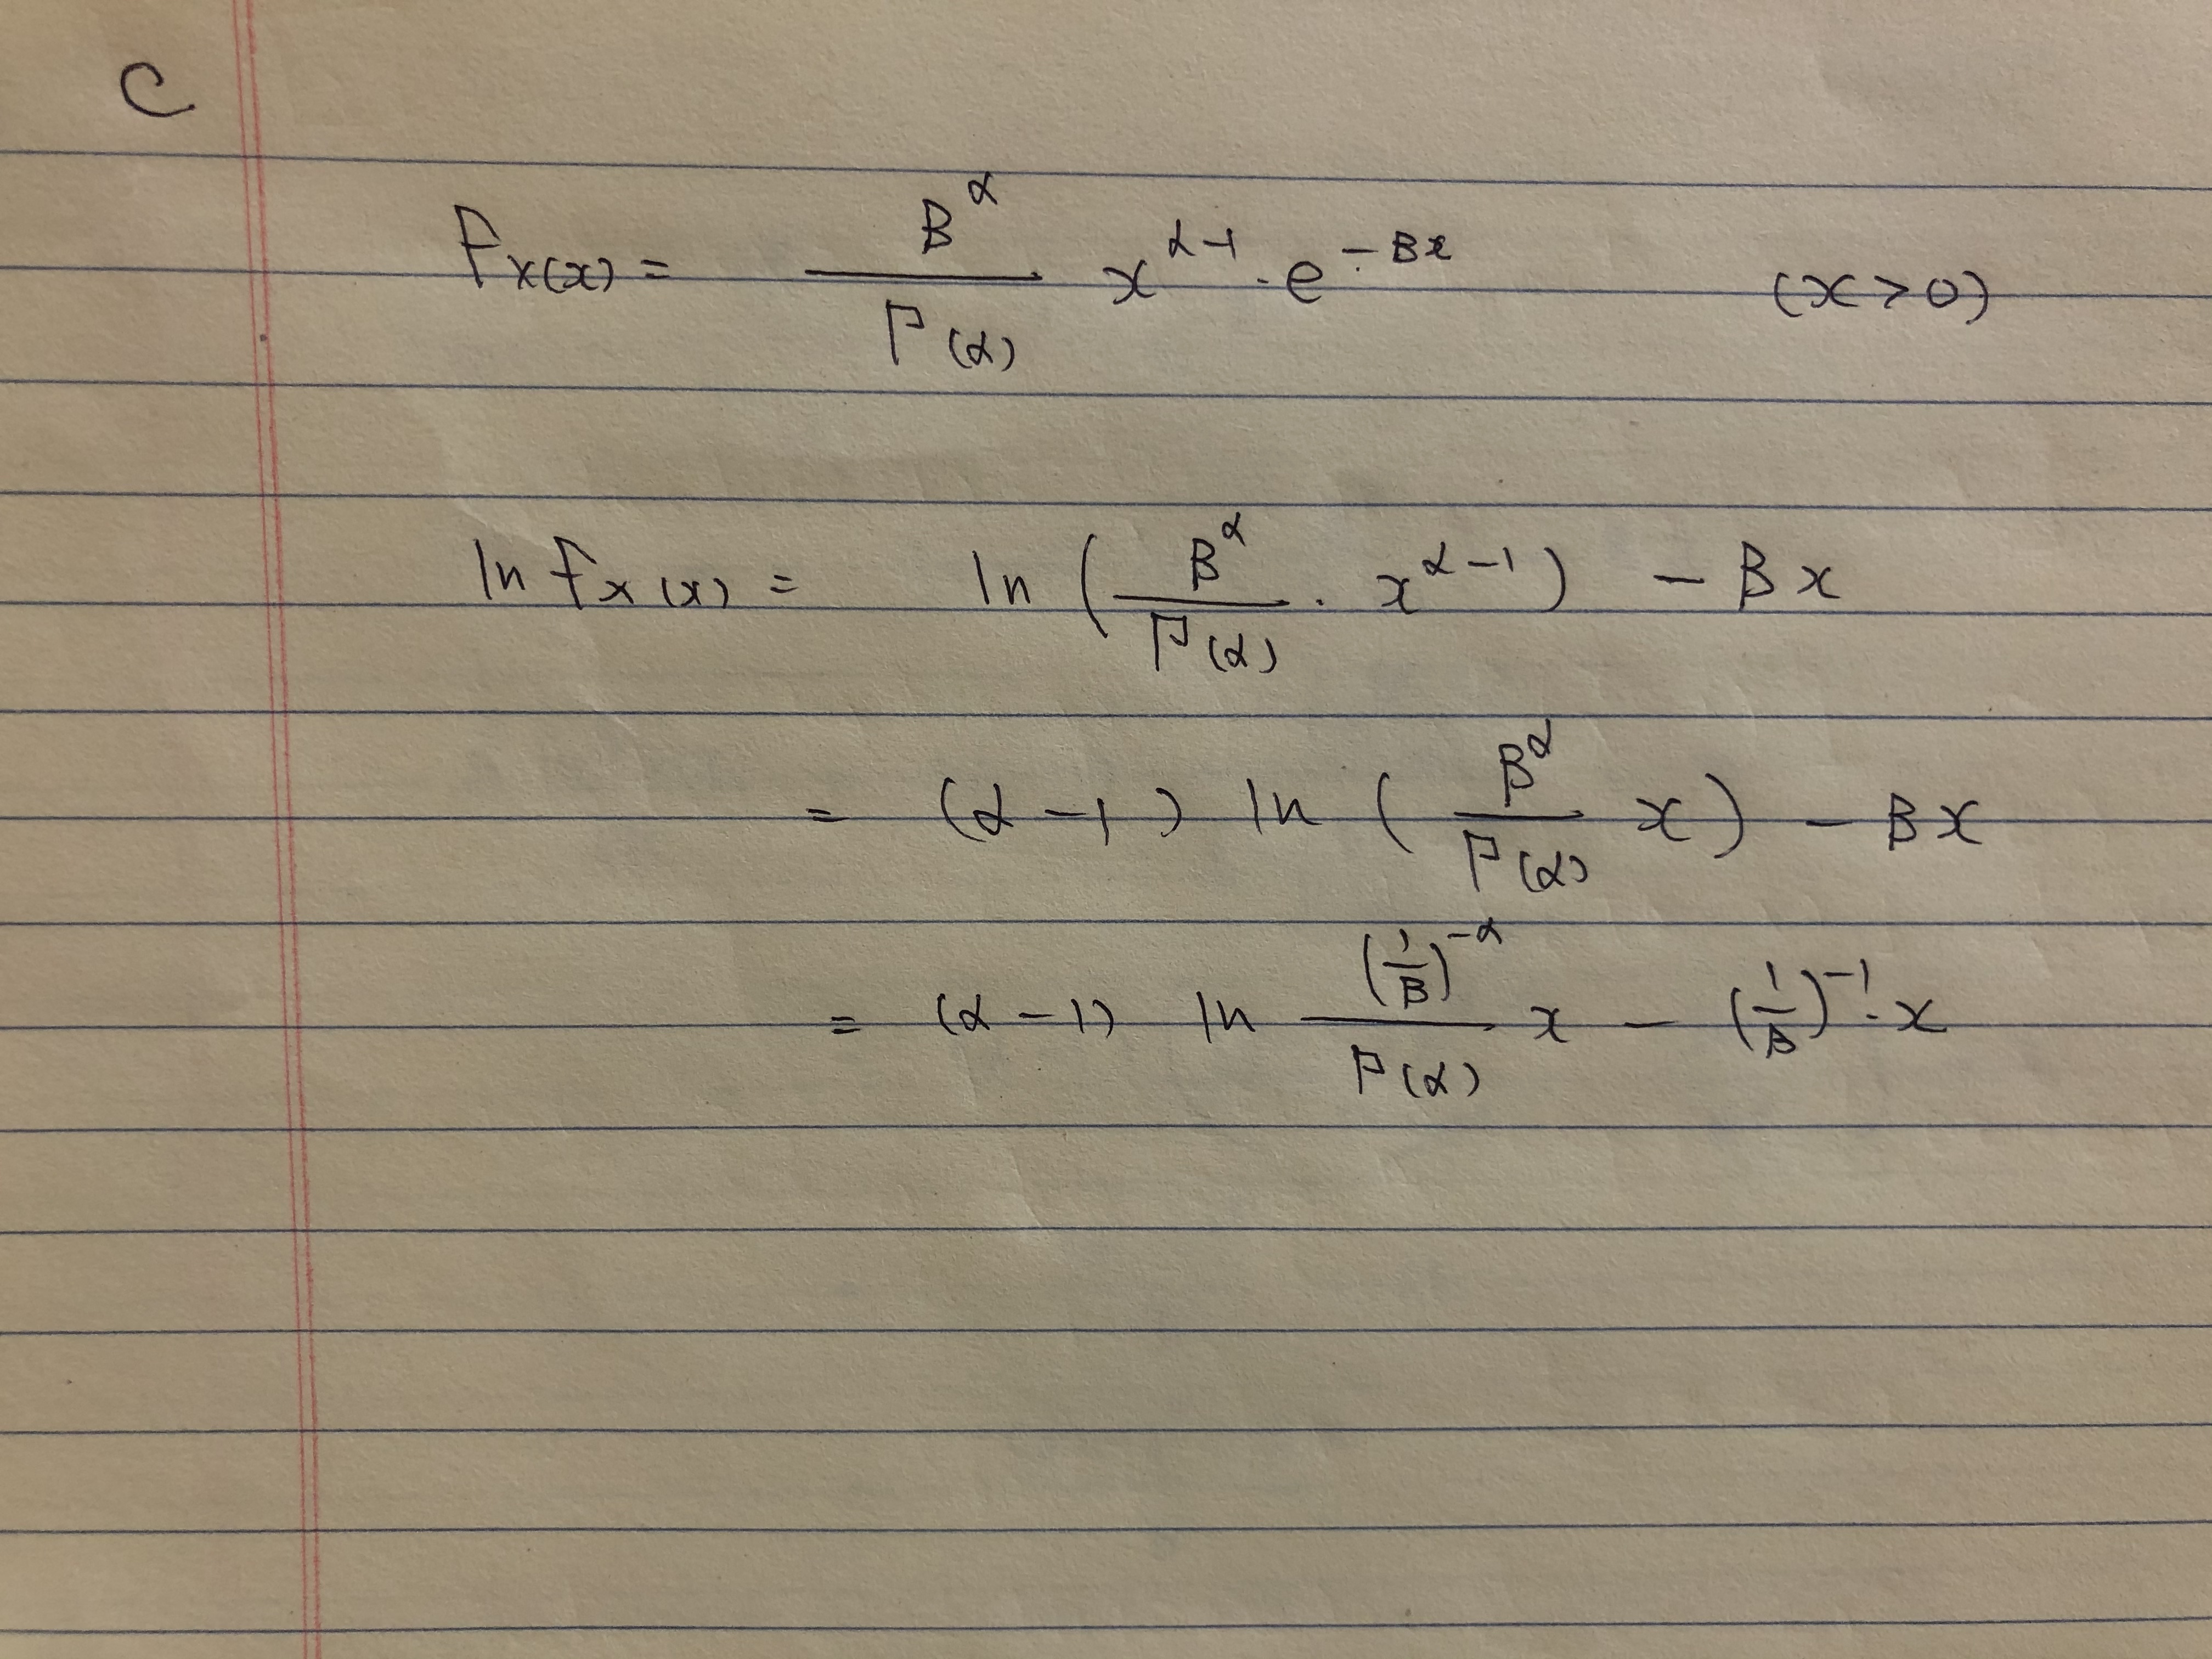 C
f_X(x) = B^α / Γ(α) x^(α-1) · e^(-Bx) (x > 0)
ln f_X(x) = ln ( B^α / Γ(α) · x^(α-1) ) - Bx
= (α - 1) ln ( B^α / Γ(α) x ) - Bx
= (α - 1) ln (1/B)^(-α) / Γ(α) x - (1/B)^(-1) · x